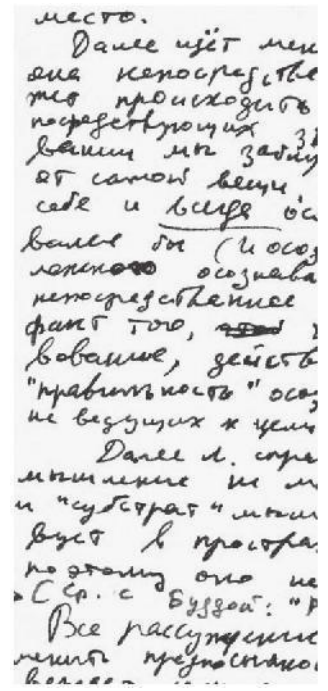 место.
Далее идёт мен
она непосредстве
жет происходить
посредствующих зв
вании мы заблу
от самой вещи
себе и всегда ос
вался бы (и осоз
ложного осознава
непосредственнее
факт того,
вование, действ
"правильность" осоз
не ведущих к цели
Далее Л. спра
мышление не м
и "субстрат" мыш
вует в простра
поэтому оно не
(Ср. с Буддой: "Р
Все рассуждения
менить предпосылко